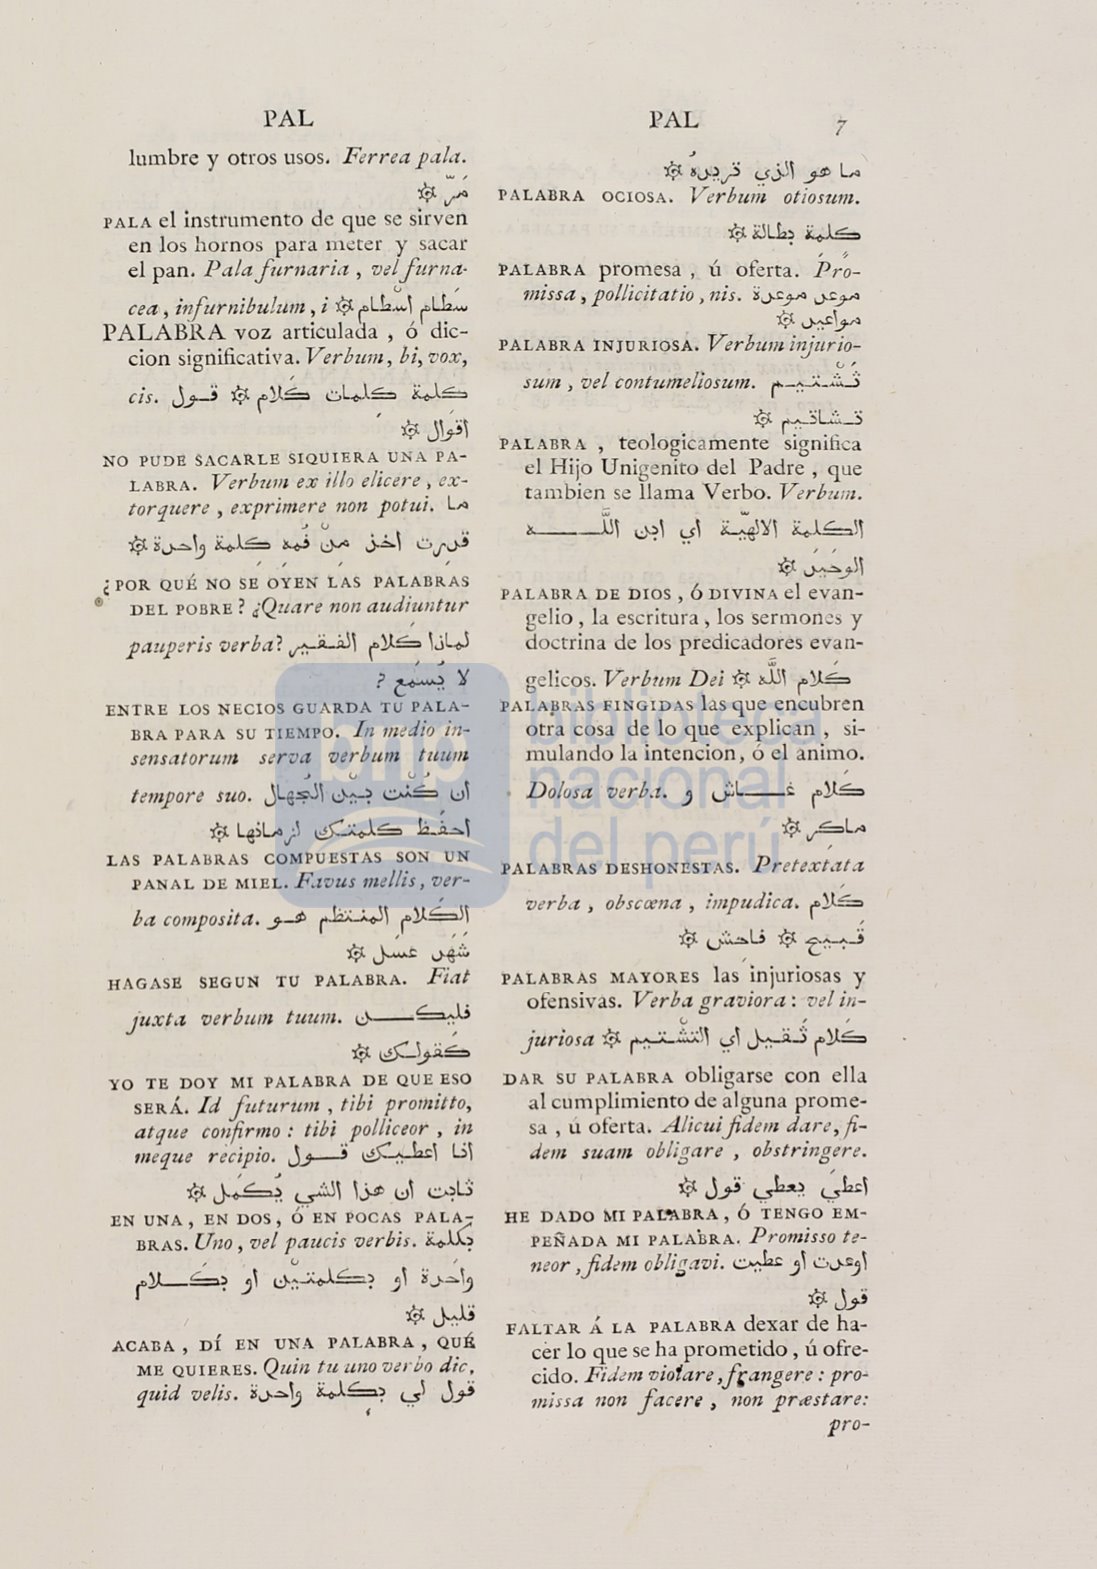 PAL
lumbre y otros usos. Ferrea pala.
مَرّ ۞
PALA el instrumento de que se sirven
en los hornos para meter y sacar
el pan. Pala furnaria, vel furna-
cea, infurnibulum, i ۞ سَطام اسْطام
PALABRA voz articulada, ó dic-
cion significativa. Verbum, bi, vox,
cis. كلمة كلمات كَلام ۞ قول
اقوَال ۞
NO PUDE SACARLE SIQUIERA UNA PA-
LABRA. Verbum ex illo elicere, ex-
torquere, exprimere non potui. ما
قدرت اخذ منْ فُمه كلمة واحدة ۞
¿POR QUÉ NO SE OYEN LAS PALABRAS
DEL POBRE? ¿Quare non audiuntur
pauperis verba? لماذا كَلام الفقير
لا يُسمَع ?
ENTRE LOS NECIOS GUARDA TU PALA-
BRA PARA SU TIEMPO. In medio in-
sensatorum serva verbum tuum
tempore suo. ان كُنْت بيْن الجُهال
احفَظ كلمتك لزمانها ۞
LAS PALABRAS COMPUESTAS SON UN
PANAL DE MIEL. Favus mellis, ver-
ba composita. الكَلام المنتظم هو
شَهَد عسَل ۞
HAGASE SEGUN TU PALABRA. Fiat
juxta verbum tuum. فليكن
كَقولك ۞
YO TE DOY MI PALABRA DE QUE ESO
SERÁ. Id futurum, tibi promitto,
atque confirmo: tibi polliceor, in
meque recipio. انا اعطيك قول
ثابت ان هذا الشي يُكمَل ۞
EN UNA, EN DOS, Ó EN POCAS PALA-
BRAS. Uno, vel paucis verbis. بكلمة
واحَدة او بكلمتيْن او بكَلام
قليل ۞
ACABA, DÍ EN UNA PALABRA, QUÉ
ME QUIERES. Quin tu uno verbo dic,
quid velis. قول لي بكلمة واحدة
PAL 7
ما هو الذي تريدهُ ۞
PALABRA OCIOSA. Verbum otiosum.
كلمة بطالة ۞
PALABRA promesa, ú oferta. Pro-
missa, pollicitatio, nis. موعد موعدة
مواعيد ۞
PALABRA INJURIOSA. Verbum injurio-
sum, vel contumeliosum. تَشْتيم
تشاتيم ۞
PALABRA, teologicamente significa
el Hijo Unigenito del Padre, que
tambien se llama Verbo. Verbum.
الكلمة الالهيّة اي ابن اللَّه
الوحَيَد ۞
PALABRA DE DIOS, Ó DIVINA el evan-
gelio, la escritura, los sermones y
doctrina de los predicadores evan-
gelicos. Verbum Dei ۞ كَلام اللَّه
PALABRAS FINGIDAS las que encubren
otra cosa de lo que explican, si-
mulando la intencion, ó el animo.
Dolosa verba. كَلام غاش و
ماكر ۞
PALABRAS DESHONESTAS. Pretextata
verba, obscœna, impudica. كَلام
قَبيح ۞ فاحش ۞
PALABRAS MAYORES las injuriosas y
ofensivas. Verba graviora: vel in-
juriosa ۞ كَلام ثَقيل اي التشْتيم
DAR SU PALABRA obligarse con ella
al cumplimiento de alguna prome-
sa, ú oferta. Alicui fidem dare, fi-
dem suam obligare, obstringere.
اعطيَ يعطي قول ۞
HE DADO MI PALABRA, Ó TENGO EM-
PEÑADA MI PALABRA. Promisso te-
neor, fidem obligavi. اوعدت او عطيت
قول ۞
FALTAR Á LA PALABRA dexar de ha-
cer lo que se ha prometido, ú ofre-
cido. Fidem violare, frangere: pro-
missa non facere, non præstare:
pro-
bnp biblioteca
nacional
del perú